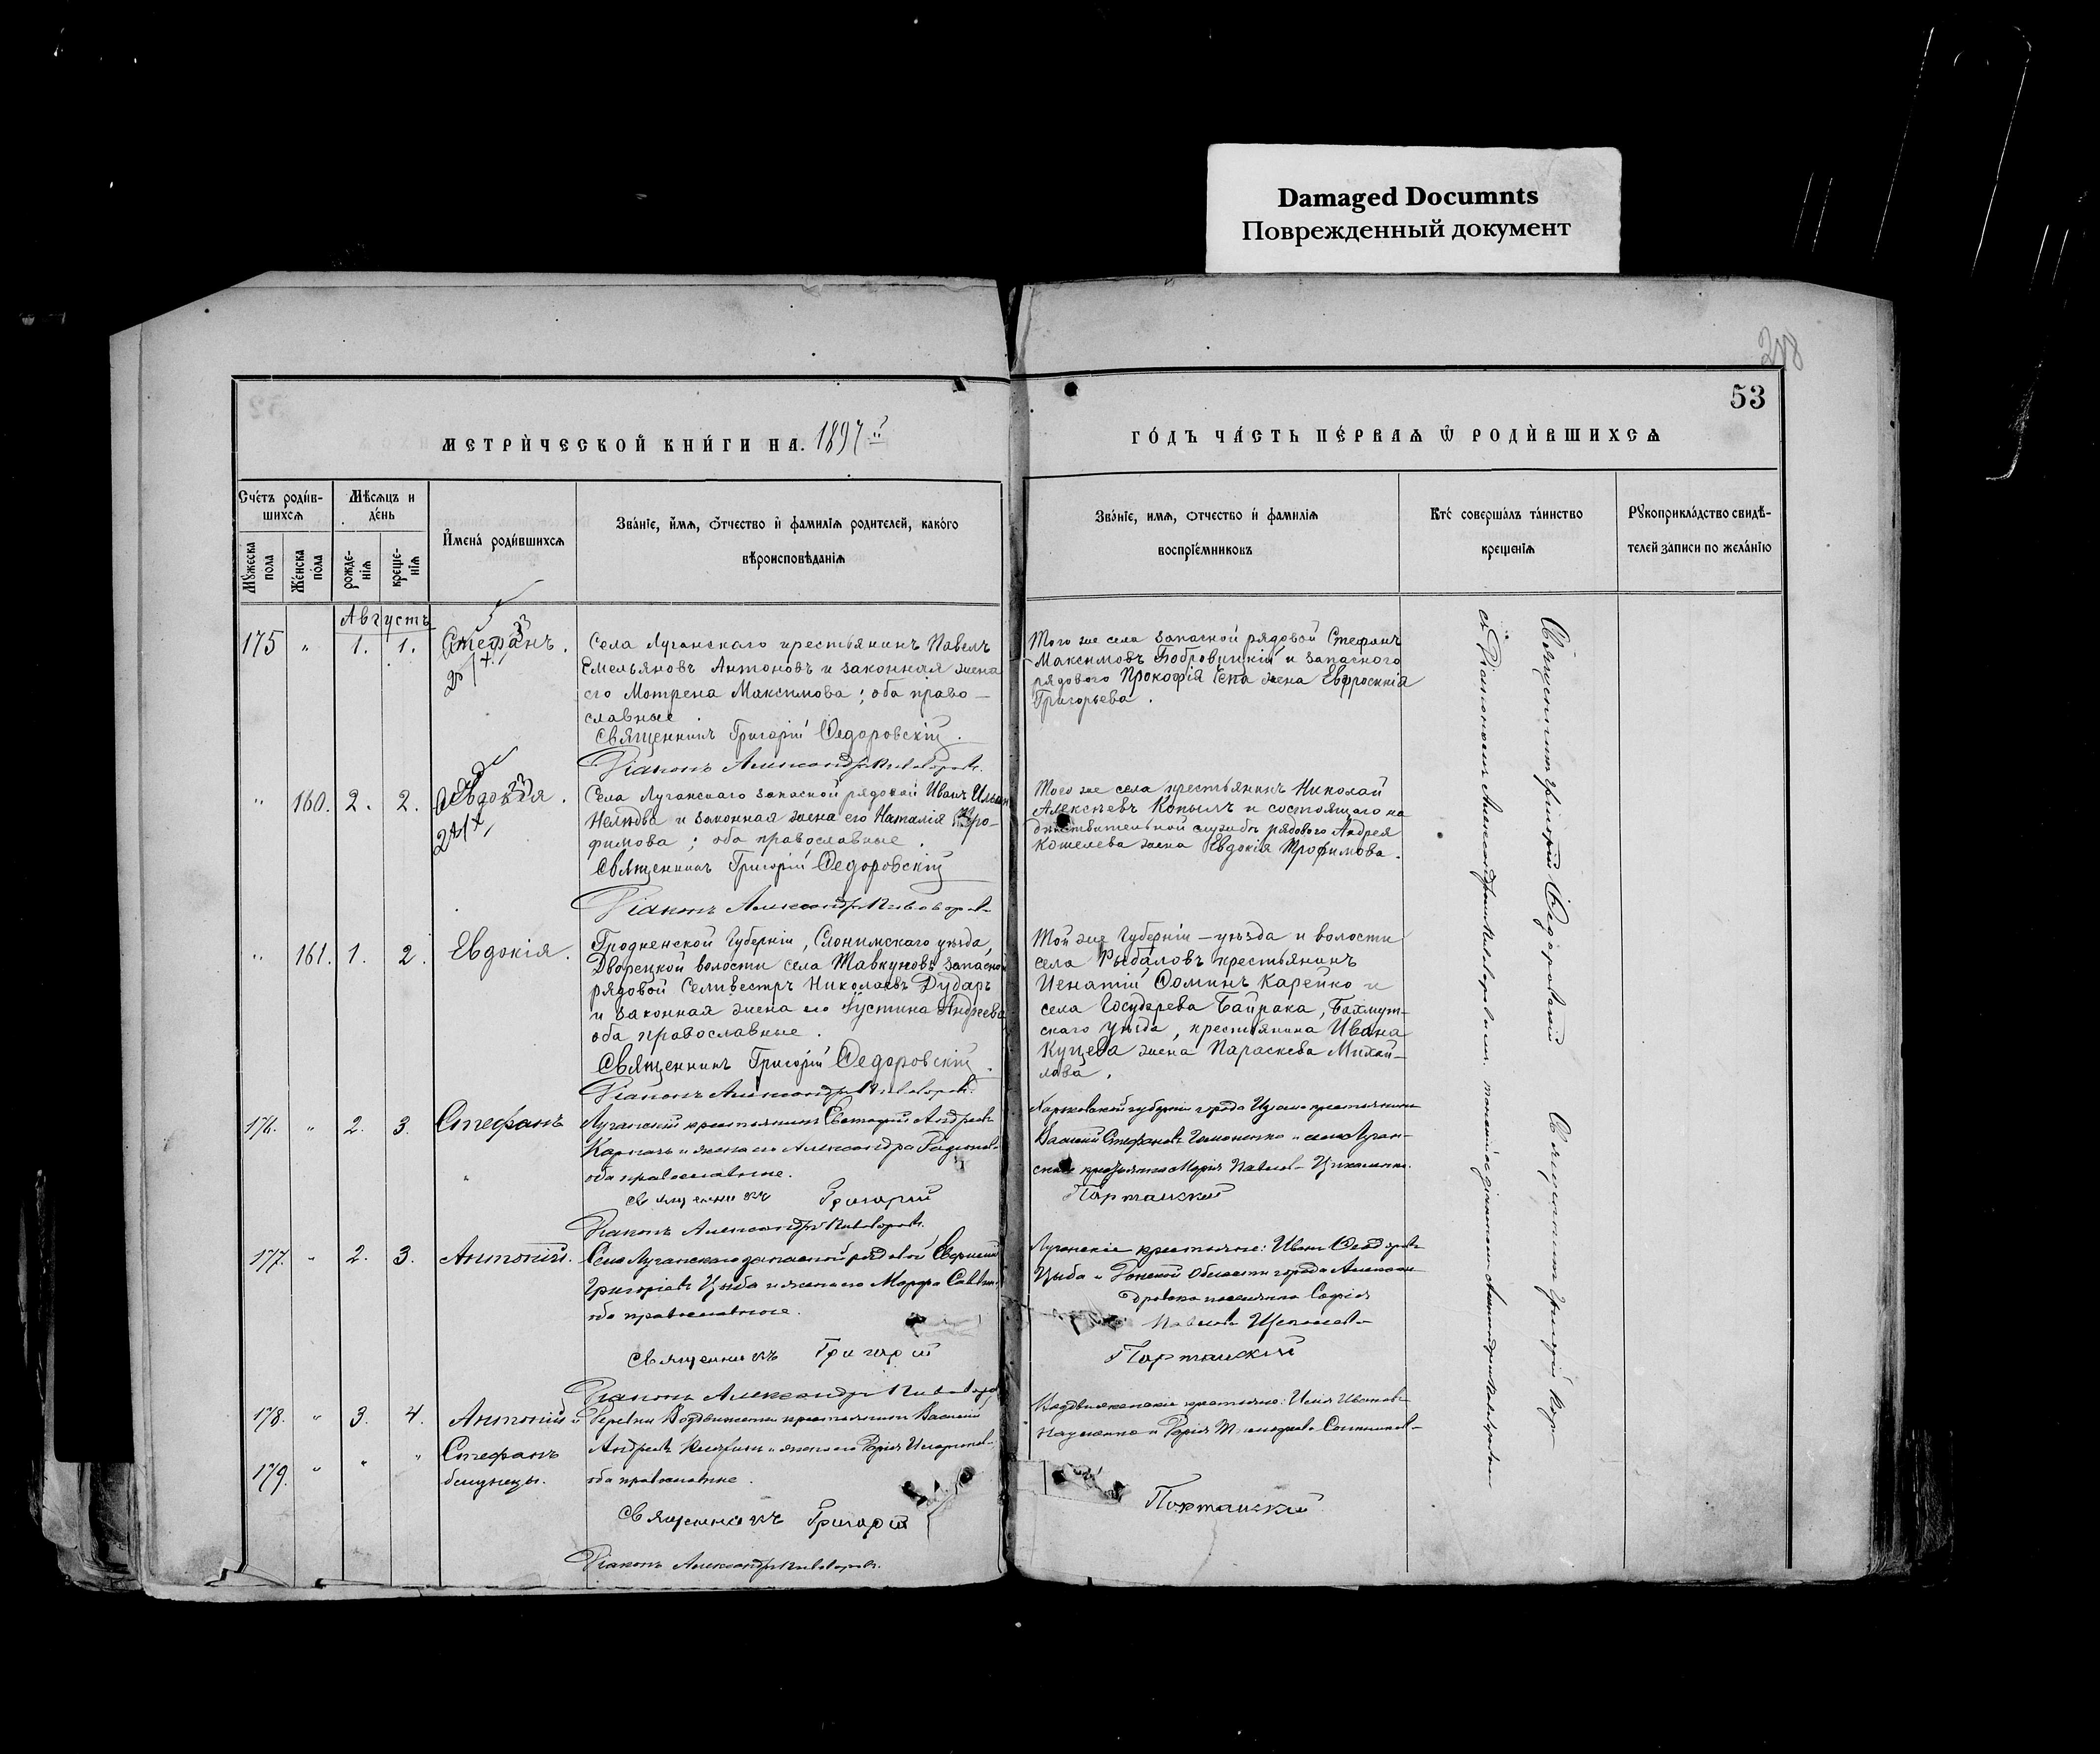 Damaged Documnts
Поврежденный документ
53
МЕТРИЧЕСКОЙ КНИГИ НА 1897
ГОДЪ ЧАСТЬ ПЕРВАЯ Ѿ РОДИВШИХСЯ
Счетъ родив-
шихся
Мужеска пола
Женска пола
Мѣсяцъ и
день
рожде-
нія
креще-
нія
Имена родившихся
Званіе, имя, отчество и фамилія родителей, какого
вѣроисповѣданія
Званіе, имя, отчество и фамилія
воспріемниковъ
Кто совершалъ таинство
крещенія
Рукоприкладство свидѣ-
телей записи по желанію
Августъ
175 " 1. 1. Стефанъ.
Села Луганскаго крестьянинъ Павелъ
Емельяновъ Антоновъ и законная жена
его Мотрена Максимова; оба право-
славные
Священникъ Григорій Ѳедоровскій.
Діаконъ Александръ Пивоваровъ.
Того же села запасной рядовой Стефанъ
Максимовъ Бобровицкій и запаснаго
рядового Прокофія жена Евфросинія
Григорьева.
" 160. 2. 2. Евдокія.
Села Луганскаго запасной рядовой Иванъ
и законная жена его Наталія
фимова; оба православные.
Священникъ Григорій Ѳедоровскій
Діаконъ Александръ Пивоваровъ
Того же села крестьянинъ Николай
Алексѣевъ Копылъ и состоящаго на
дѣйствительной службѣ рядового Андрея
Кошелева жена Евдокія Трофимова.
" 161. 1. 2. Евдокія.
Гродненской Губерніи, Слонимскаго уѣзда,
Дворецкой волости села Тавкуновъ запасной
рядовой Селивестръ Николаевъ Дударь
и законная жена его Іустина Андреева
оба православные.
Священникъ Григорій Ѳедоровскій.
Діаконъ Александръ Пивоваровъ.
Той же Губерніи - уѣзда и волости
села Рыбаловъ крестьянинъ
Игнатій Ѳоминъ Карейко и
села Государева Байрака, Бахмут-
скаго уѣзда, крестьянина Ивана
Куцева жена Параскева Михай-
лова.
176. " 2. 3. Стефанъ
Луганскій крестьянинъ Андреевъ
и жена его Александра
оба православные.
Священникъ Григорій
Діаконъ Александръ Пивоваровъ.
Харьковской губерніи города Изюма крестьянинъ
Василій Стефановъ и села Луган-
Марія Павлова
Портанскій
177. " 2. 3. Антоній.
Села Луганскаго запасной рядовой
Григорьевъ Цыба и жена его Марфа
оба православные.
Священникъ Григорій
Діаконъ Александръ Пивоваровъ
Луганскіе крестьяне: Иванъ Ѳеодоровъ
Цыба и Донской Области города Алексан-
Софія
Павлова
Портанскій
178. " 3. 4. Антоній и
179. " " " Стефанъ
близнецы.
Деревни крестьянинъ Василій
Андреевъ и жена его Дарія
оба православные.
Священникъ Григорій
Діаконъ Александръ Пивоваровъ.
крестьяне: Илія Ивановъ
Науменко и Дарія
Портанскій
Священникъ Григорій Ѳедоровскій
съ Діакономъ Александромъ Пивоваровымъ.
Священникъ Григорій